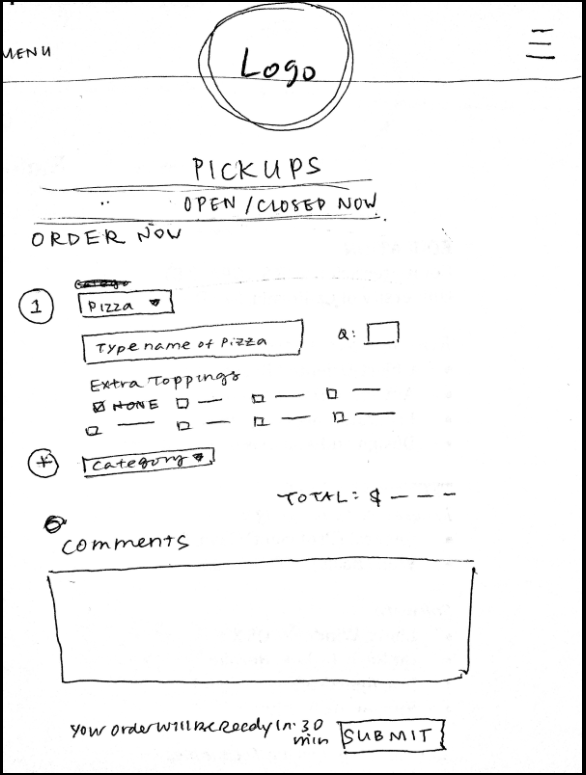 MENU
Logo
PICKUPS
OPEN/CLOSED NOW
ORDER NOW
1
Pizza
Type name of Pizza
Q:
Extra Toppings
NONE
+
category
TOTAL: $ - - -
comments
Your order will be Ready in: 30
min
SUBMIT